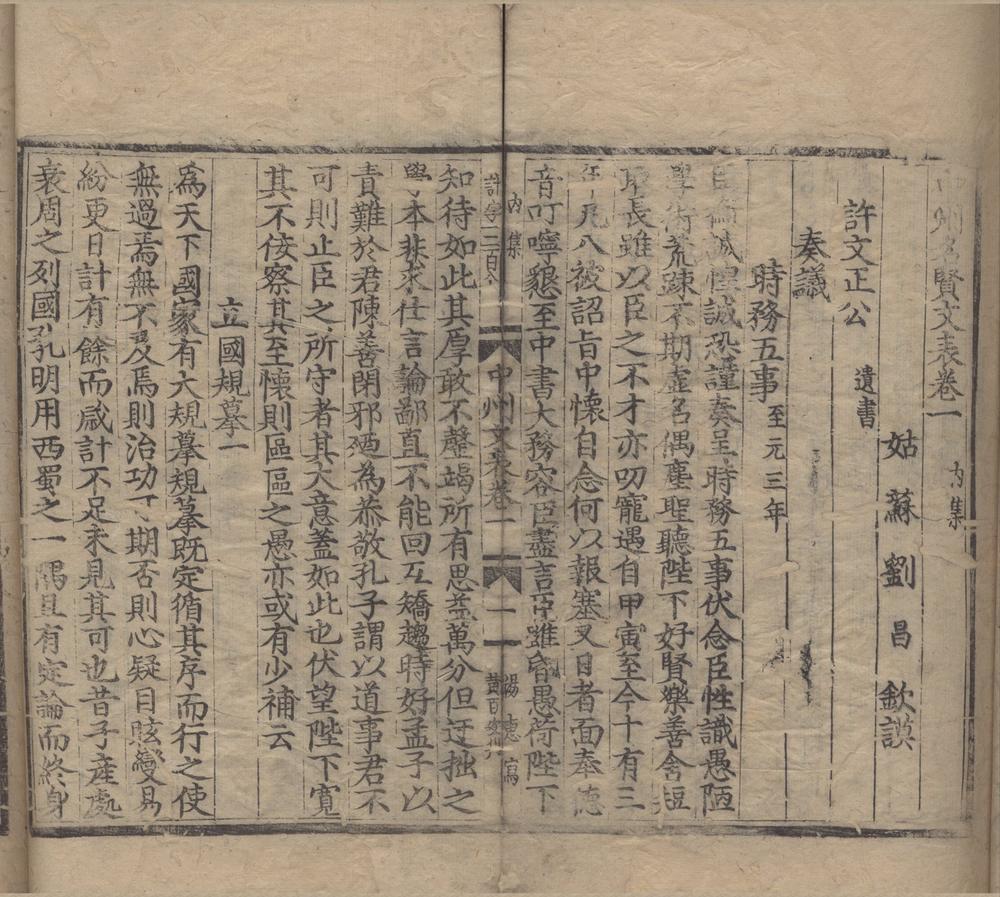 中州名賢文表卷一 内集
姑蘇劉昌欽謨
許文正公 遺書
奏議
時務五事 至元三年
臣衡誠惶誠恐謹奏呈時務五事伏念臣性識愚陋
學術荒踈不期虚名偶塵聖聽陛下好賢樂善舍短
取長雖以臣之不才亦叨寵遇自甲寅至今十有三
年凡八被詔旨中懷自念何以報塞又日者面奉德
音叮嚀懇至中書大務容臣盡言臣雖昏愚荷陛下
内集
許字二百
中州文表卷一
一
楊惠寫
黄百安刋
知待如此其厚敢不罄竭所有思益萬分但迂拙之
學本非求仕言論鄙直不能回互矯趨時好孟子以
責難於君陳善閉邪廼為恭敬孔子謂以道事君不
可則止臣之所守者其大意蓋如此也伏望陛下寛
其不佞察其至懷則區區之愚亦或有少補云
立國規摹一
爲天下國家有大規摹規摹既定循其序而行之使
無過焉無不及焉則治功可期否則心疑目眩變易
紛更日計有餘而歲計不足未見其可也昔子産處
衰周之列國孔明用西蜀之一隅且有定論而終身